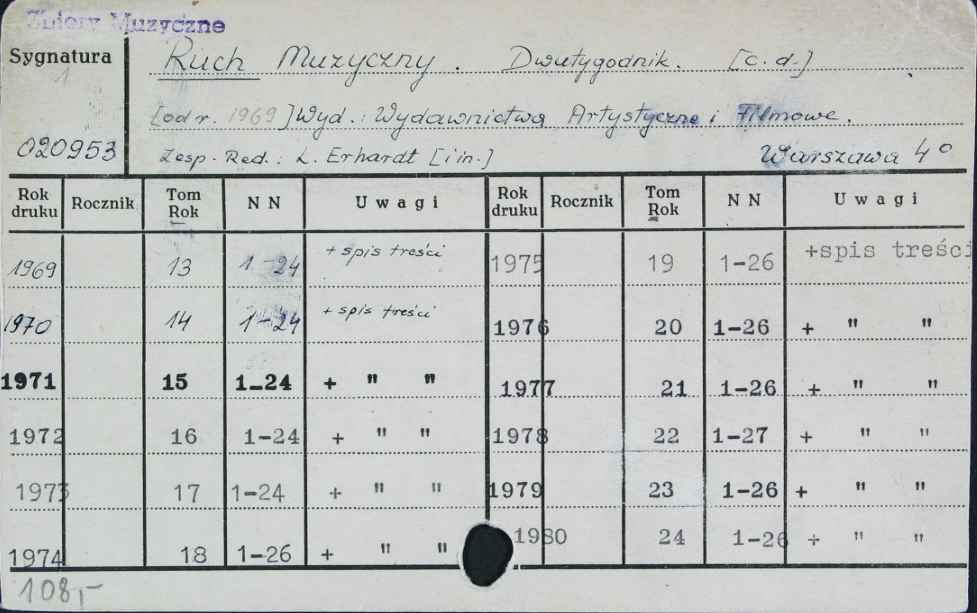 Zbiory Muzyczne
Sygnatura
1
020953
Ruch Muzyczny. Dwutygodnik. [c.d.]
[od r. 1969] Wyd.: Wydawnictwa Artystyczne i Filmowe.
Zesp. Red.: L. Erhardt [i in.] Warszawa 4°
Rok druku Rocznik Tom Rok NN Uwagi Rok druku Rocznik Tom Rok NN Uwagi
1969 13 1-24 + spis treści 1975 19 1-26 +spis treści
1970 14 1-24 + spis treści 1976 20 1-26 + " "
1971 15 1-24 + " " 1977 21 1-26 + " "
1972 16 1-24 + " " 1978 22 1-27 + " "
1973 17 1-24 + " " 1979 23 1-26 + " "
1974 18 1-26 + " " 1980 24 1-26 + " "
108,-